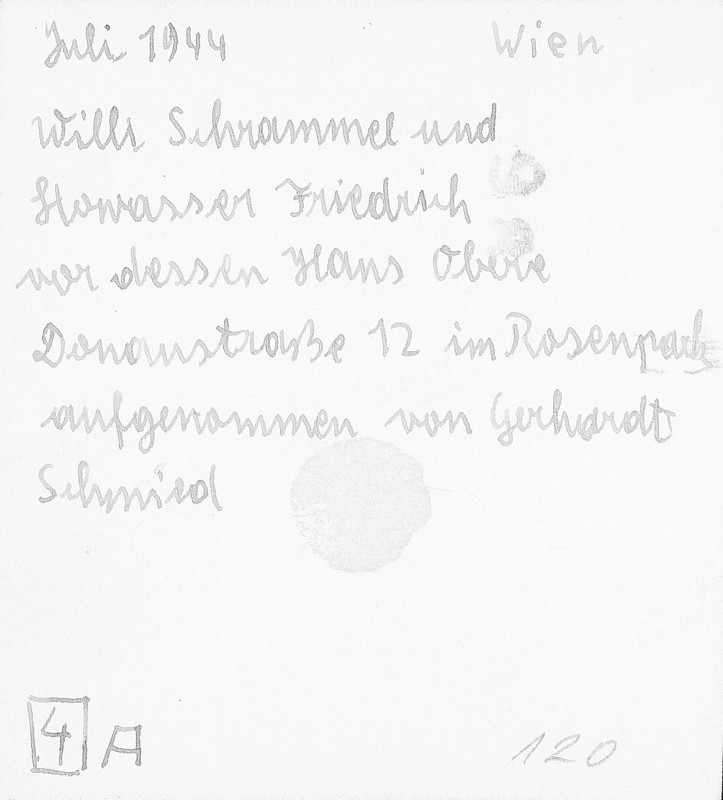 Juli 1944 Wien
Willi Schrammel und
Howasser Friedrich
vor dessen Haus Obere
Donaustraße 12 im Rosenpark
aufgenommen von Gerhardt
Schmied
4 A 120